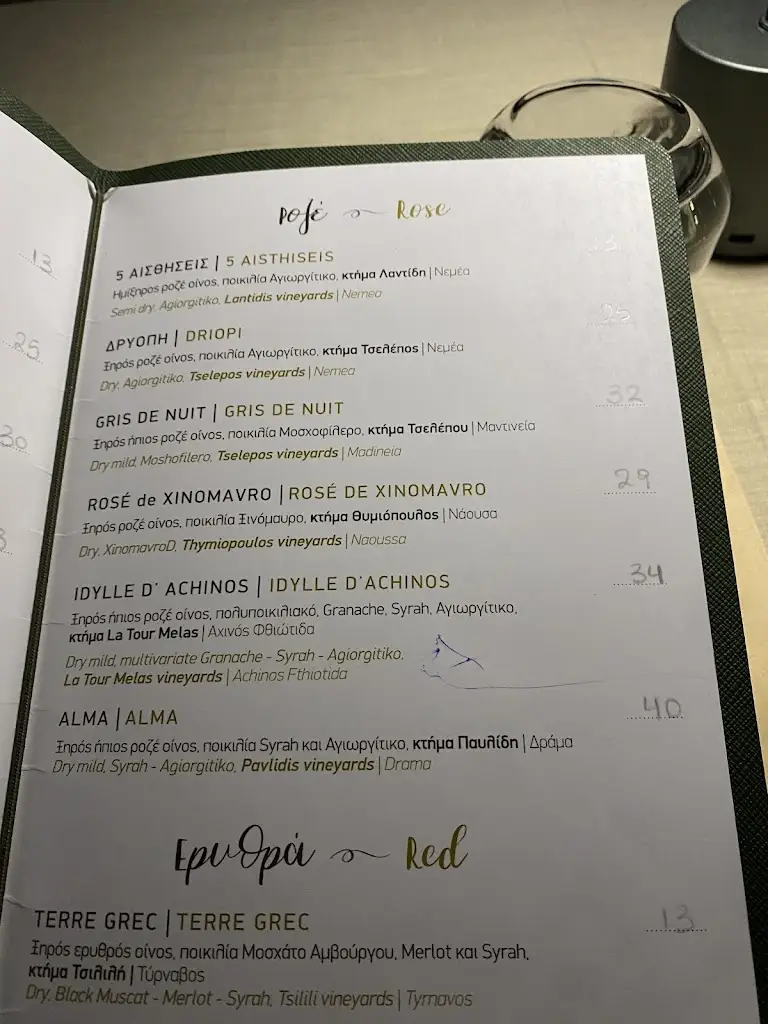 Ροζέ Rose
5 ΑΙΣΘΗΣΕΙΣ | 5 AISTHISEIS 13
Ημίξηρος ροζέ οίνος, ποικιλία Αγιωργίτικο, κτήμα Λαντίδη | Νεμέα
Semi dry, Agiorgitiko, Lantidis vineyards | Nemea
ΔΡΥΟΠΗ | DRIOPI 25
Ξηρός ροζέ οίνος, ποικιλία Αγιωργίτικο, κτήμα Τσελέπος | Νεμέα
Dry, Agiorgitiko, Tselepos vineyards | Nemea
GRIS DE NUIT | GRIS DE NUIT 32
Ξηρός ήπιος ροζέ οίνος, ποικιλία Μοσχοφίλερο, κτήμα Τσελέπου | Μαντινεία
Dry mild, Moshofilero, Tselepos vineyards | Madineia
ROSÉ de XINOMAVRO | ROSÉ DE XINOMAVRO 29
Ξηρός ροζέ οίνος, ποικιλία Ξινόμαυρο, κτήμα Θυμιόπουλος | Νάουσα
Dry, XinomavroD, Thymiopoulos vineyards | Naoussa
IDYLLE D' ACHINOS | IDYLLE D'ACHINOS 34
Ξηρός ήπιος ροζέ οίνος, πολυποικιλιακό, Granache, Syrah, Αγιωργίτικο,
κτήμα La Tour Melas | Αχινός Φθιώτιδα
Dry mild, multivariate Granache - Syrah - Agiorgitiko,
La Tour Melas vineyards | Achinos Fthiotida
ALMA | ALMA 40
Ξηρός ήπιος ροζέ οίνος, ποικιλία Syrah και Αγιωργίτικο, κτήμα Παυλίδη | Δράμα
Dry mild, Syrah - Agiorgitiko, Pavlidis vineyards | Drama
Ερυθρά Red
TERRE GREC | TERRE GREC 13
Ξηρός ερυθρός οίνος, ποικιλία Μοσχάτο Αμβούργου, Merlot και Syrah,
κτήμα Τσιλιλή | Τύρναβος
Dry, Black Muscat - Merlot - Syrah, Tsilili vineyards | Tyrnavos
13
25
30